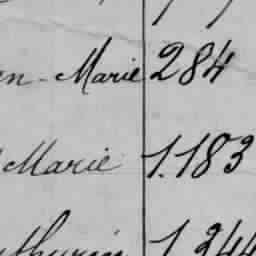 en-Marie 284
Marie 1.183
thurin 1.244